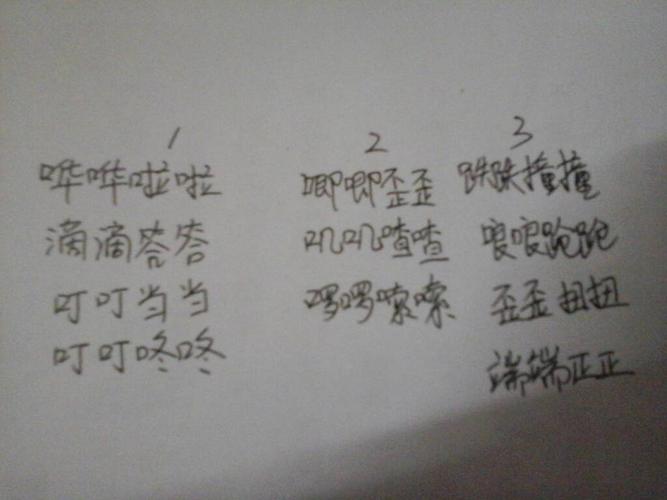 1
哗哗啦啦
滴滴答答
叮叮当当
叮叮咚咚
2
唧唧歪歪
叽叽喳喳
啰啰嗦嗦
3
跌跌撞撞
哴哴跄跄
歪歪扭扭
端端正正